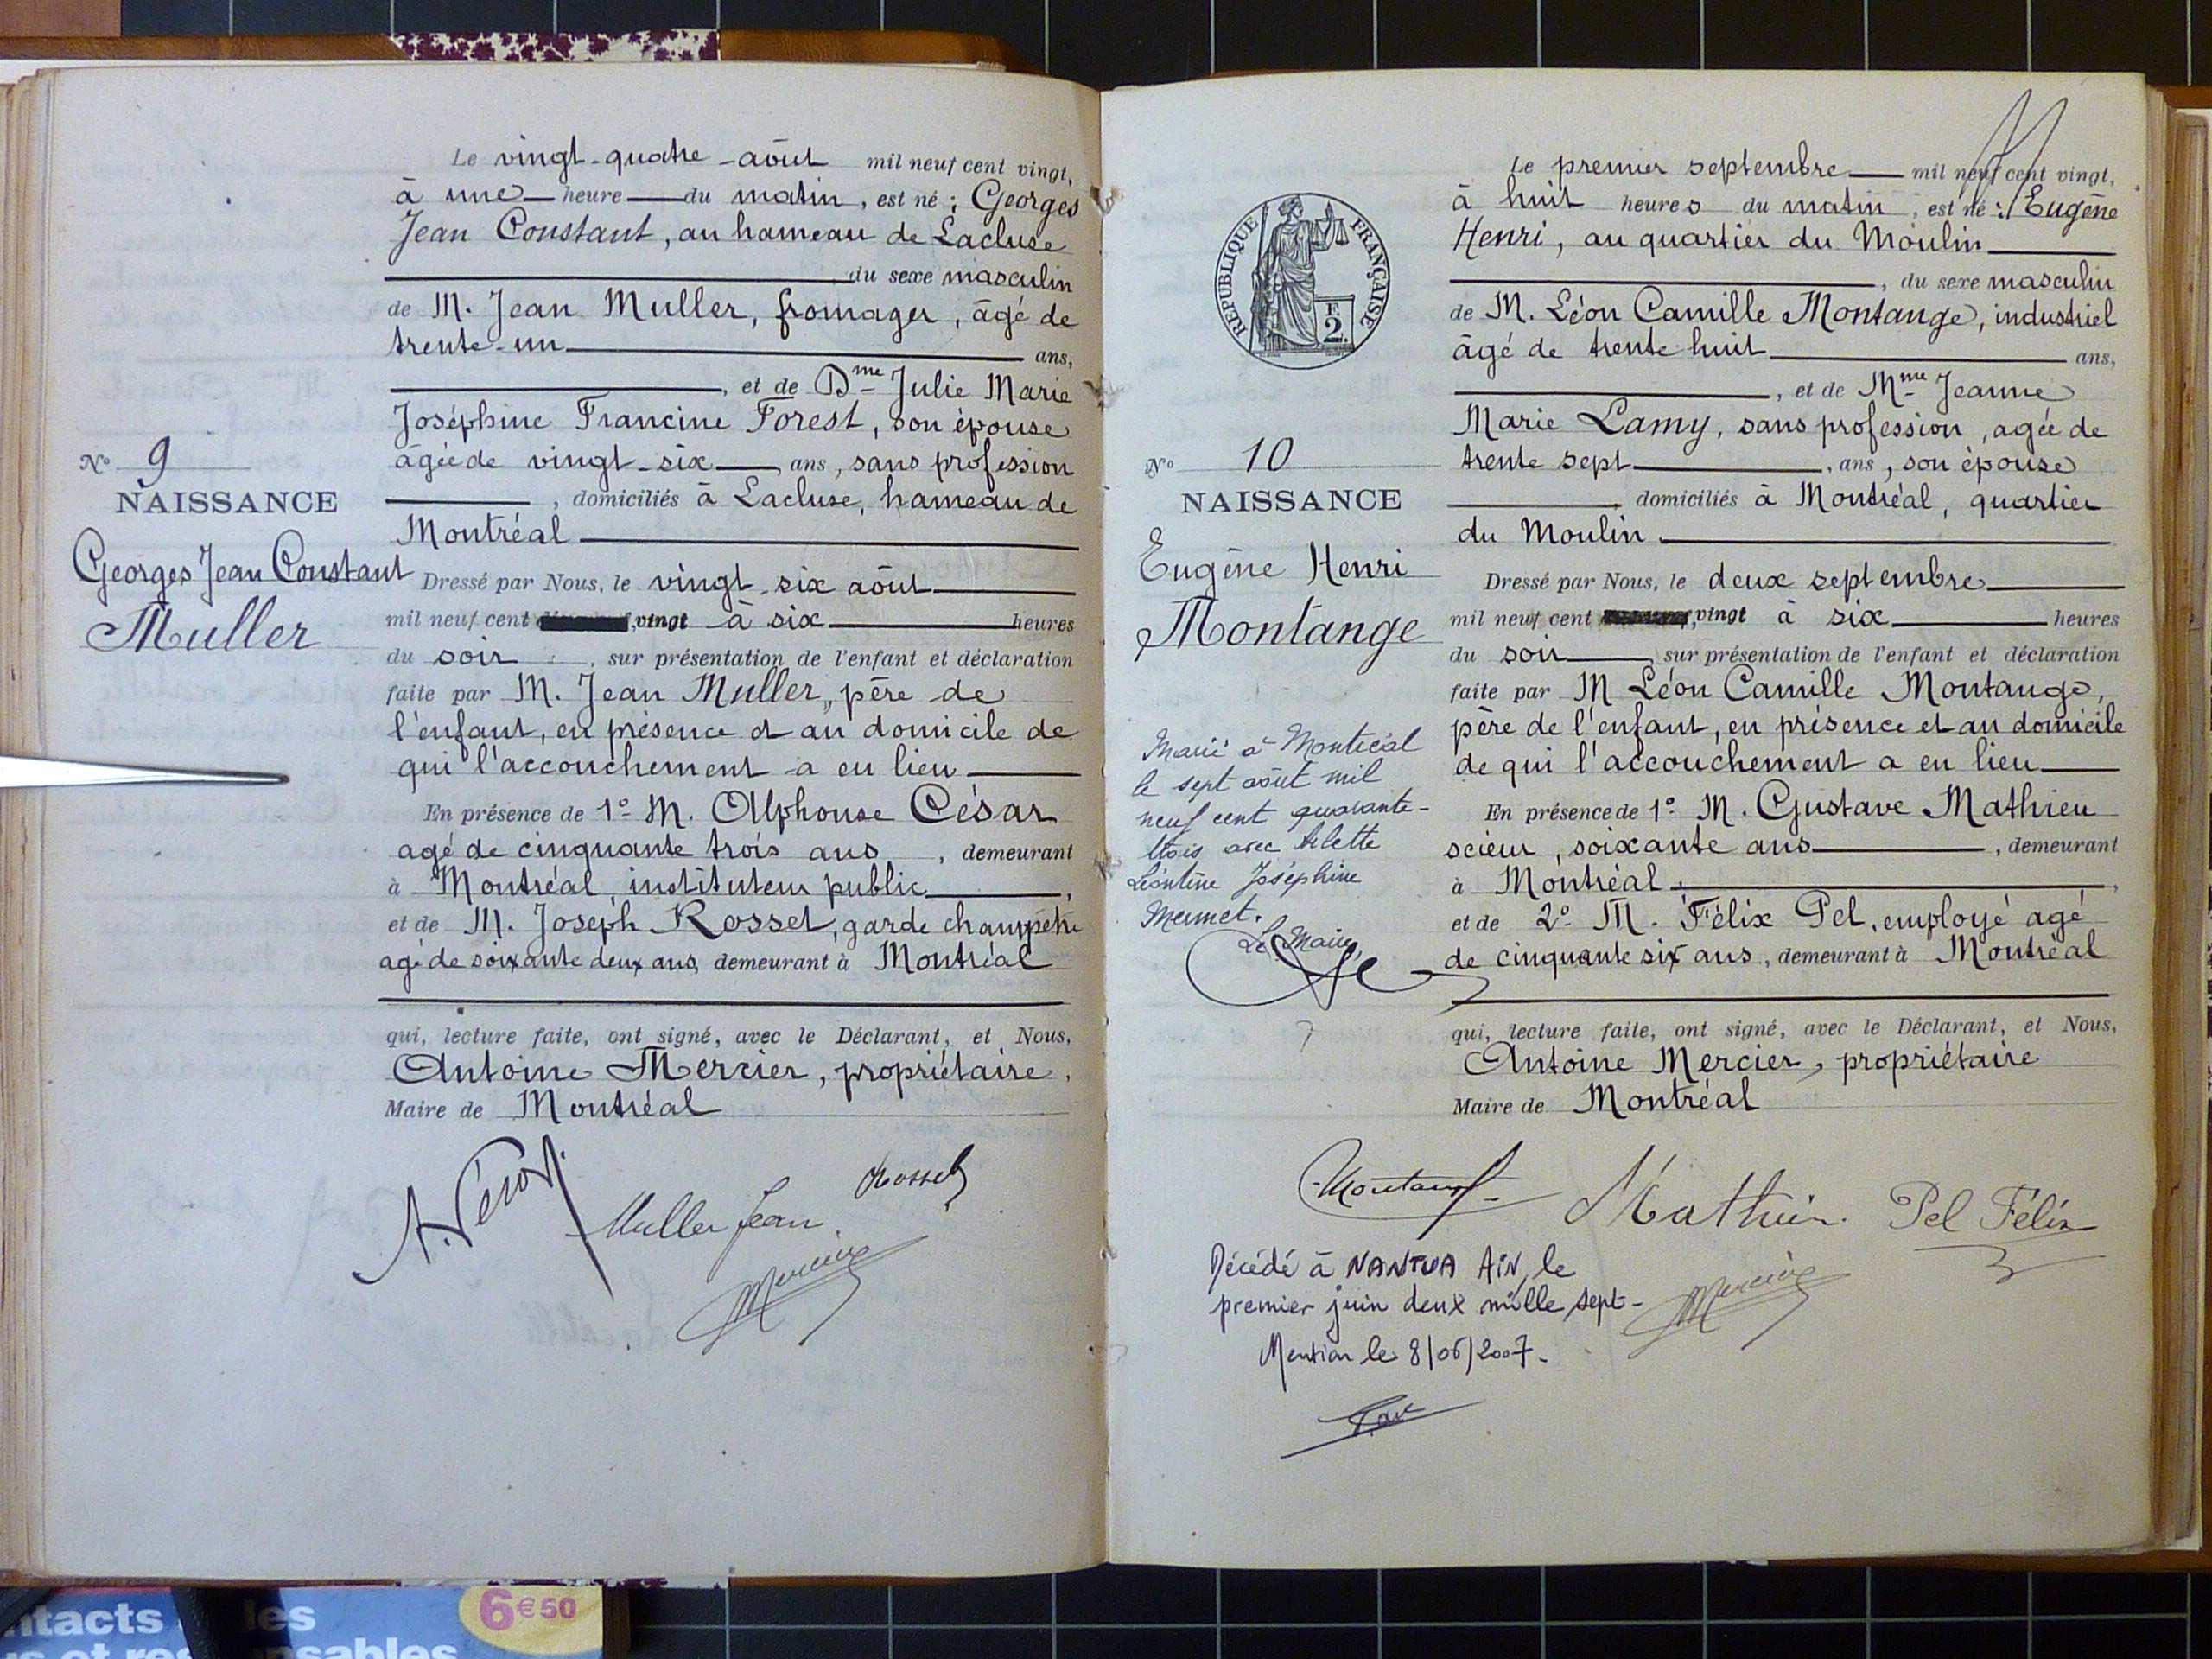 Le vingt-quatre-août mil neuf cent vingt,
à une heure du matin, est né : Georges
Jean Constant, au hameau de Lacluse
du sexe masculin
de M. Jean Muller, fromager, âgé de
trente-un ans,
, et de Dme Julie Marie
Joséphine Francine Forest, son épouse
âgée de vingt-six ans, sans profession
, domiciliés à Lacluse, hameau de
Montréal
No 9
NAISSANCE
Georges Jean Constant
Muller
Dressé par Nous, le vingt-six août
mil neuf cent vingt à six heures
du soir, sur présentation de l'enfant et déclaration
faite par M. Jean Muller, père de
l'enfant, en présence et au domicile de
qui l'accouchement a eu lieu
En présence de 1º M. Alphonse César
agé de cinquante trois ans, demeurant
à Montréal, instituteur public,
et de M. Joseph Rosset, garde champêtre
agé de soixante deux ans, demeurant à Montréal
qui, lecture faite, ont signé, avec le Déclarant, et Nous,
Antoine Mercier, propriétaire,
Maire de Montréal
A. César
Muller Jean
Rosset
Mercier
REPUBLIQUE FRANÇAISE
F.
2.
Le premier septembre mil neuf cent vingt,
à huit heures du matin, est né : Eugène
Henri, au quartier du Moulin
, du sexe masculin
de M. Léon Camille Montange, industriel
âgé de trente huit ans,
, et de Mme Jeanne
Marie Lamy, sans profession, agée de
trente sept, ans, son épouse
domiciliés à Montréal, quartier
du Moulin
No 10
NAISSANCE
Eugène Henri
Montange
Dressé par Nous, le deux septembre
mil neuf cent vingt à six heures
du soir, sur présentation de l'enfant et déclaration
faite par M Léon Camille Montange,
père de l'enfant, en présence et au domicile
de qui l'accouchement a eu lieu
En présence de 1º M. Gustave Mathieu
scieur, soixante ans, demeurant
à Montréal,
et de 2º M. Félix Pel, employé agé
de cinquante six ans, demeurant à Montréal
Marié à Montréal
le sept août mil
neuf cent quarante-
trois avec Arlette
Léontine Joséphine
Mermet.
Le Maire,
qui, lecture faite, ont signé, avec le Déclarant, et Nous,
Antoine Mercier, propriétaire
Maire de Montréal
Montange
Mathieu
Pel Félix
Mercier
Décédé à NANTUA AIN, le
premier juin deux mille sept-
Mention le 8/06/2007-
ntacts
les
nsables
6€50